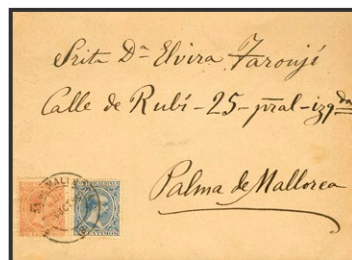 Srita Dª Elvira Taronjí
Calle de Rubí - 25 - pral - izqda
Palma de Mallorca